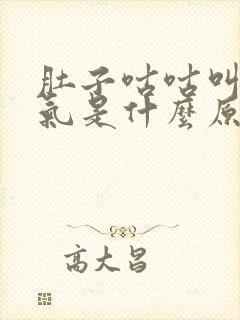 肚子咕咕叫
氣是什麼原
高大昌